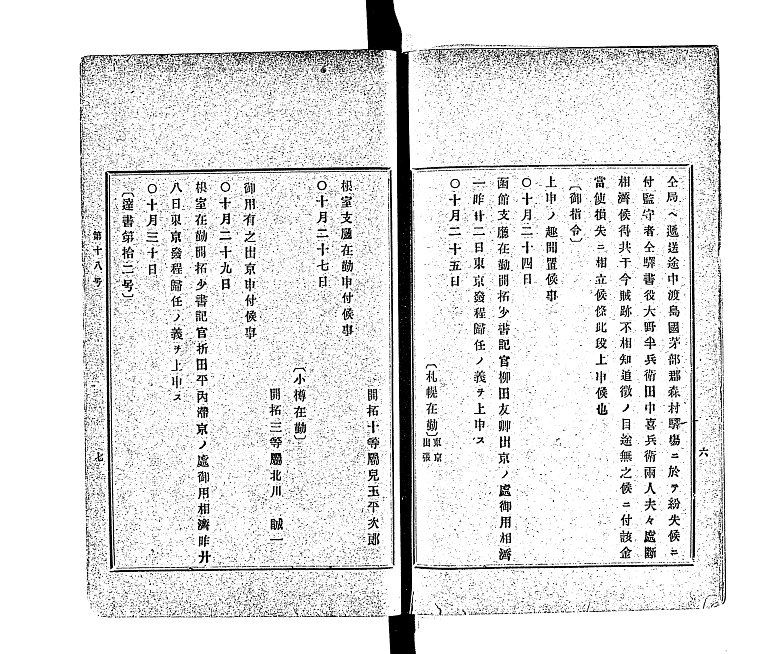 仝局ヘ遞送途中渡島國茅部郡森村驛塲ニ於テ紛失候ニ
付監守者仝驛書役大野半兵衛田中喜兵衛兩人夫々處斷
相濟候得共于今賊跡不相知道徴ノ目途無之候ニ付該金
當使損失ニ相立候條此段上申候也
〔御指令〕
上申ノ趣聞置候事
〇十月二十四日
函館支廳在勤開拓少書記官柳田友卿出京ノ處御用相濟
一昨廿二日東京發程歸任ノ義ヲ上申ス
〇十月二十五日
〔札幌在勤〕東京出張
六
開拓十等屬兒玉平次郎
根室支廳在勤申付候事
〇十月二十七日
〔小樽在勤〕
開拓三等屬北川　誠一
御用有之出京申付候事
〇十月二十九日
根室在勤開拓少書記官折田平內滯京ノ處御用相濟昨廿
八日東京發程歸任ノ義ヲ上申ス
〇十月三十日
〔達書第拾二号〕
第十八号
七